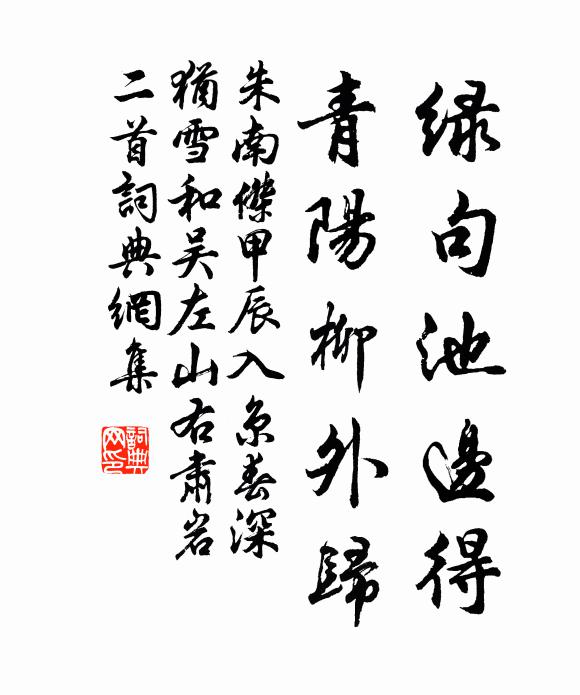 绿句池邊得
青陽柳外歸
朱南傑甲辰入京春深
猶雪和吴左山右肅岩
二首詞典網集
詞典
网印